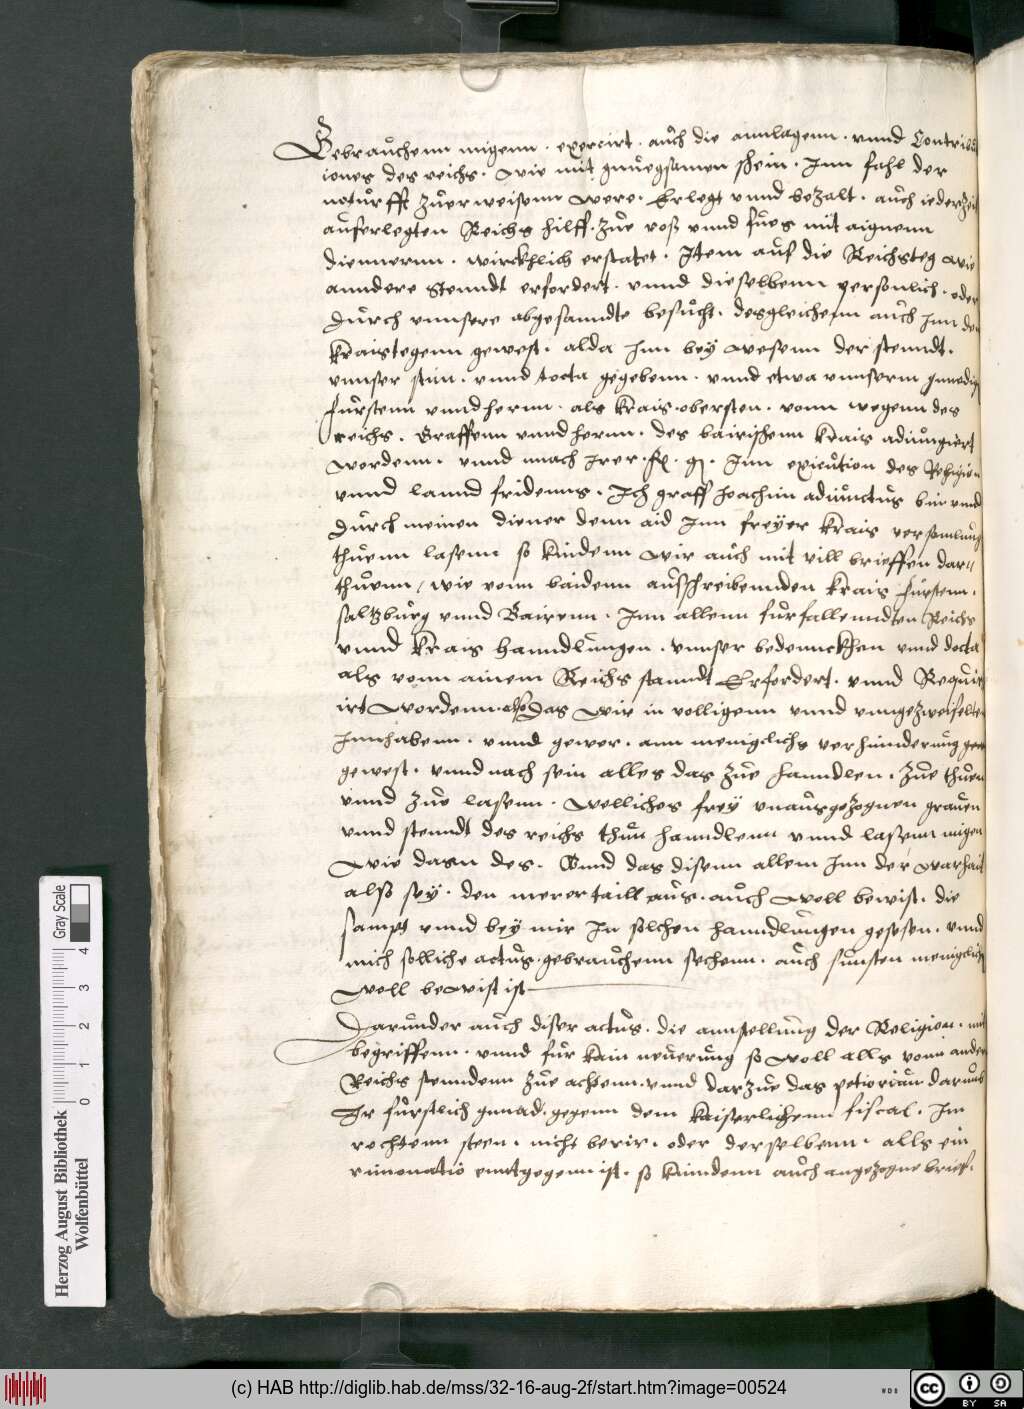 Gebrauchenn migenn . exercirt . auch die annlagenn . vnnd Contribu
iones des reichs . wie mit gnuegsamen schein . Inn fahl der
noturfft zuerweisenn were . Erlegt vnnd bezalt . auch iederzeit
auferlegten Reichs hilff . zue ross vnnd fues mit aignenn
diennernn . wircklich erstatet . Item auf die Reichsteg wie
anndere stenndt erfordert . vnnd dieselbenn personlich . oder
durch vnnsere abgesanndte besucht . desgleichenn auch Inn den
kraistegenn gewest . alda Inn bey wesenn der stenndt .
vnnser stim . vnnd vocta gegebenn . vnnd etwa vnnserm gnedig
fursten vnnd hernn . als krais obersten . vonn wegenn des
reichs . Graffenn vnnd hernn . des bairischenn krais adiungiert
wordenn . vnnd nach Irer . fl. g. Inn execution des Religion
vnnd lannd fridenns . Ich graff Joachim adiunctus bin vnnd
durch meinen diener denn aid Inn freyer krais versamlung
thuenn lasenn so kindenn wir auch mit vill brieffen dar
thuenn / wie vonn baidenn ausschreibennden krais fursten .
saltzburg vnnd Bairenn . Inn allenn furfallenndten Reichs
vnnd krais hanndlungen . vnnser bedennckhen vnnd vocta
als vonn ainem Reichs stanndt Erfordert . vnnd Requir
irt wordenn . also das wir in volligenn vnnd vnngezweifelten
Innhabenn . vnnd gewer . ann meniglichs verhinderung
gewest . vnnd nach sein alles das zue hanndlen . zue thuen
vnnd zue lasenn . welliches frey vnausgezognen grauen
vnnd stenndt des reichs thun hanndlenn vnnd lassenn migen
wie dann des . Vnnd das disenn allem Inn der warhait
also sey . den merertaill aus . auch woll bewist . die
sampt vnnd bey mir In solchen hanndlungen gesesen . vnnd
mich solliche actus . gebrauchenn sechenn . auch sunsten meniglich
woll bewist ist
Darunder auch diser actus . die annstellung der Religion . mit
begriffenn . vnnd fur kain neuerung so woll alls vonn ander
Reichs stenndenn zue achtenn . vnnd darzue das petiorium darumb
Ir furstlich gnnad . gegenn dem kaiserlichenn fiscal . Im
rechtenn steen . nicht berir . oder derselbenn . alls ein
enntgegenn ist . so kinndenn auch angezogne brieff .
Herzog August Bibliothek
Wolfenbüttel
0 1 2 3 4
Gray Scale
(c) HAB http://diglib.hab.de/mss/32-16-aug-2f/start.htm?image=00524
WDB
cc
BY SA